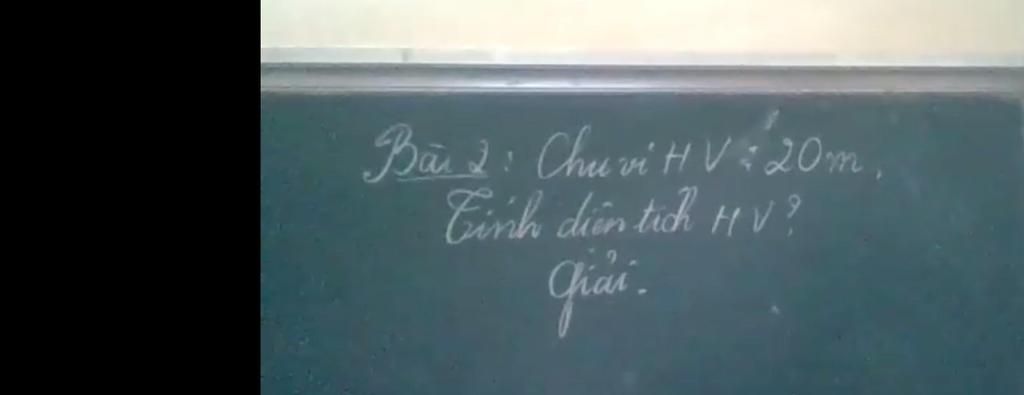 Bài 2: Chu vi HV: 20m.
Tính diện tích HV?
Giải.